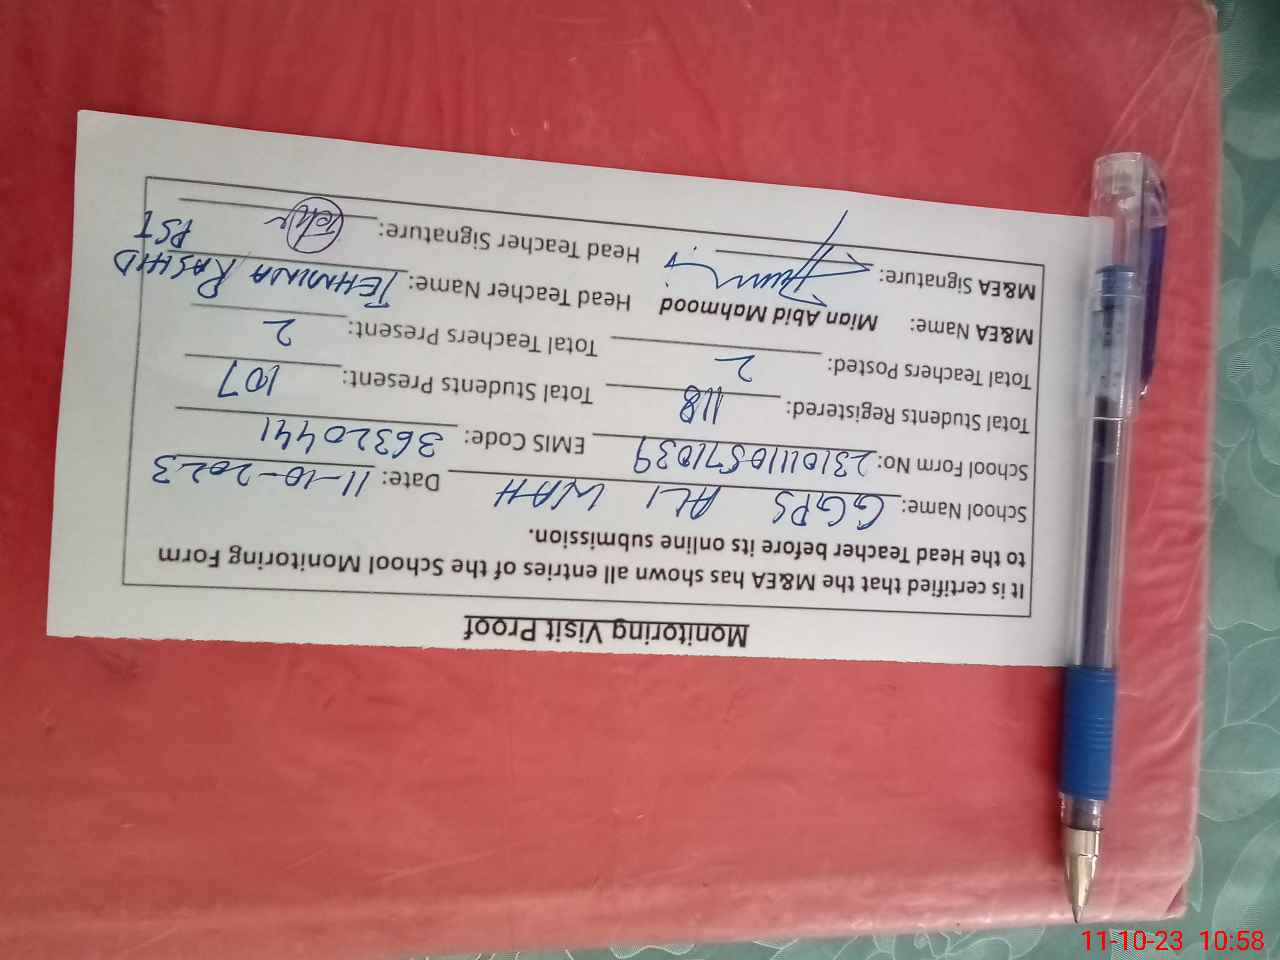 Monitoring Visit Proof
It is certified that the M&EA has shown all entries of the School Monitoring Form
to the Head Teacher before its online submission.
School Name: GGPS ALI WAH Date: 11-10-2023
School Form No: 23101110571039 EMIS Code: 36320441
Total Students Registered: 118 Total Students Present: 107
Total Teachers Posted: 2 Total Teachers Present: 2
M&EA Name: Mian Abid Mahmood Head Teacher Name: TEHMINA RASHID
PST
M&EA Signature: Head Teacher Signature:
11-10-23 10:58